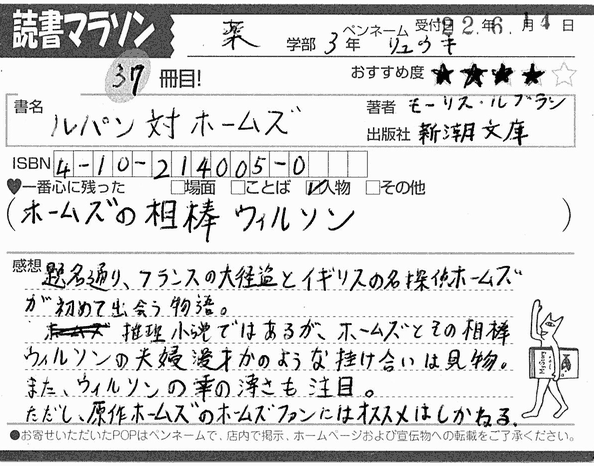 読書マラソン
薬 学部 3年 ペンネーム りゅうき 受付日 22年 6月 14日
37 冊目!
おすすめ度 ★★★★☆
書名 ルパン対ホームズ
著者 モーリス・ルブラン
出版社 新潮文庫
ISBN 4-10-214005-0
♥一番心に残った □場面 □ことば ☑人物 □その他
(ホームズの相棒 ウィルソン)
感想 題名通り、フランスの大怪盗とイギリスの名探偵ホームズ
が初めて出会う物語。
推理小説ではあるが、ホームズとその相棒
ウィルソンの夫婦漫才かのような掛け合いは見物。
また、ウィルソンの幸の薄さも注目。
ただし、原作ホームズのホームズファンにはオススメはしかねる。
●お寄せいただいたPOPはペンネームで、店内で掲示、ホームページおよび宣伝物への転載をご了承ください。